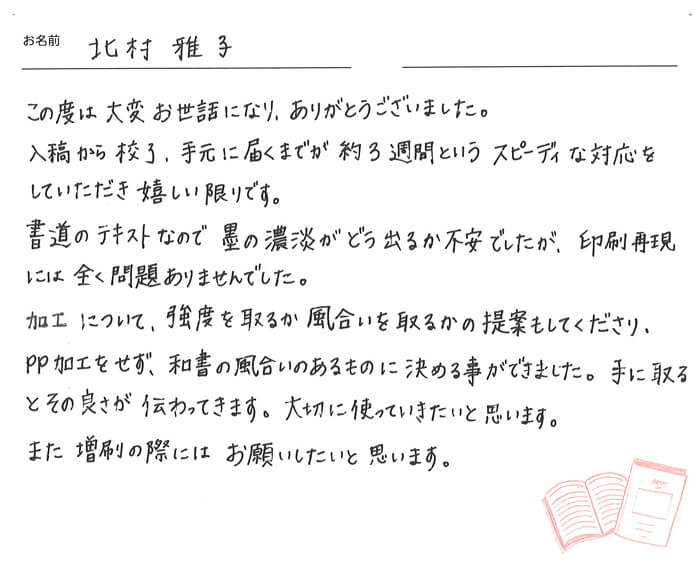 お名前 北村 雅子
この度は大変お世話になり、ありがとうございました。
入稿から校了、手元に届くまでが約3週間というスピーディな対応を
していただき嬉しい限りです。
書道のテキストなので墨の濃淡がどう出るか不安でしたが、印刷再現
には全く問題ありませんでした。
加工について、強度を取るか風合いを取るかの提案もしてくださり、
PP加工をせず、和書の風合いのあるものに決める事ができました。手に取る
とその良さが伝わってきます。大切に使っていきたいと思います。
また増刷の際にはお願いしたいと思います。